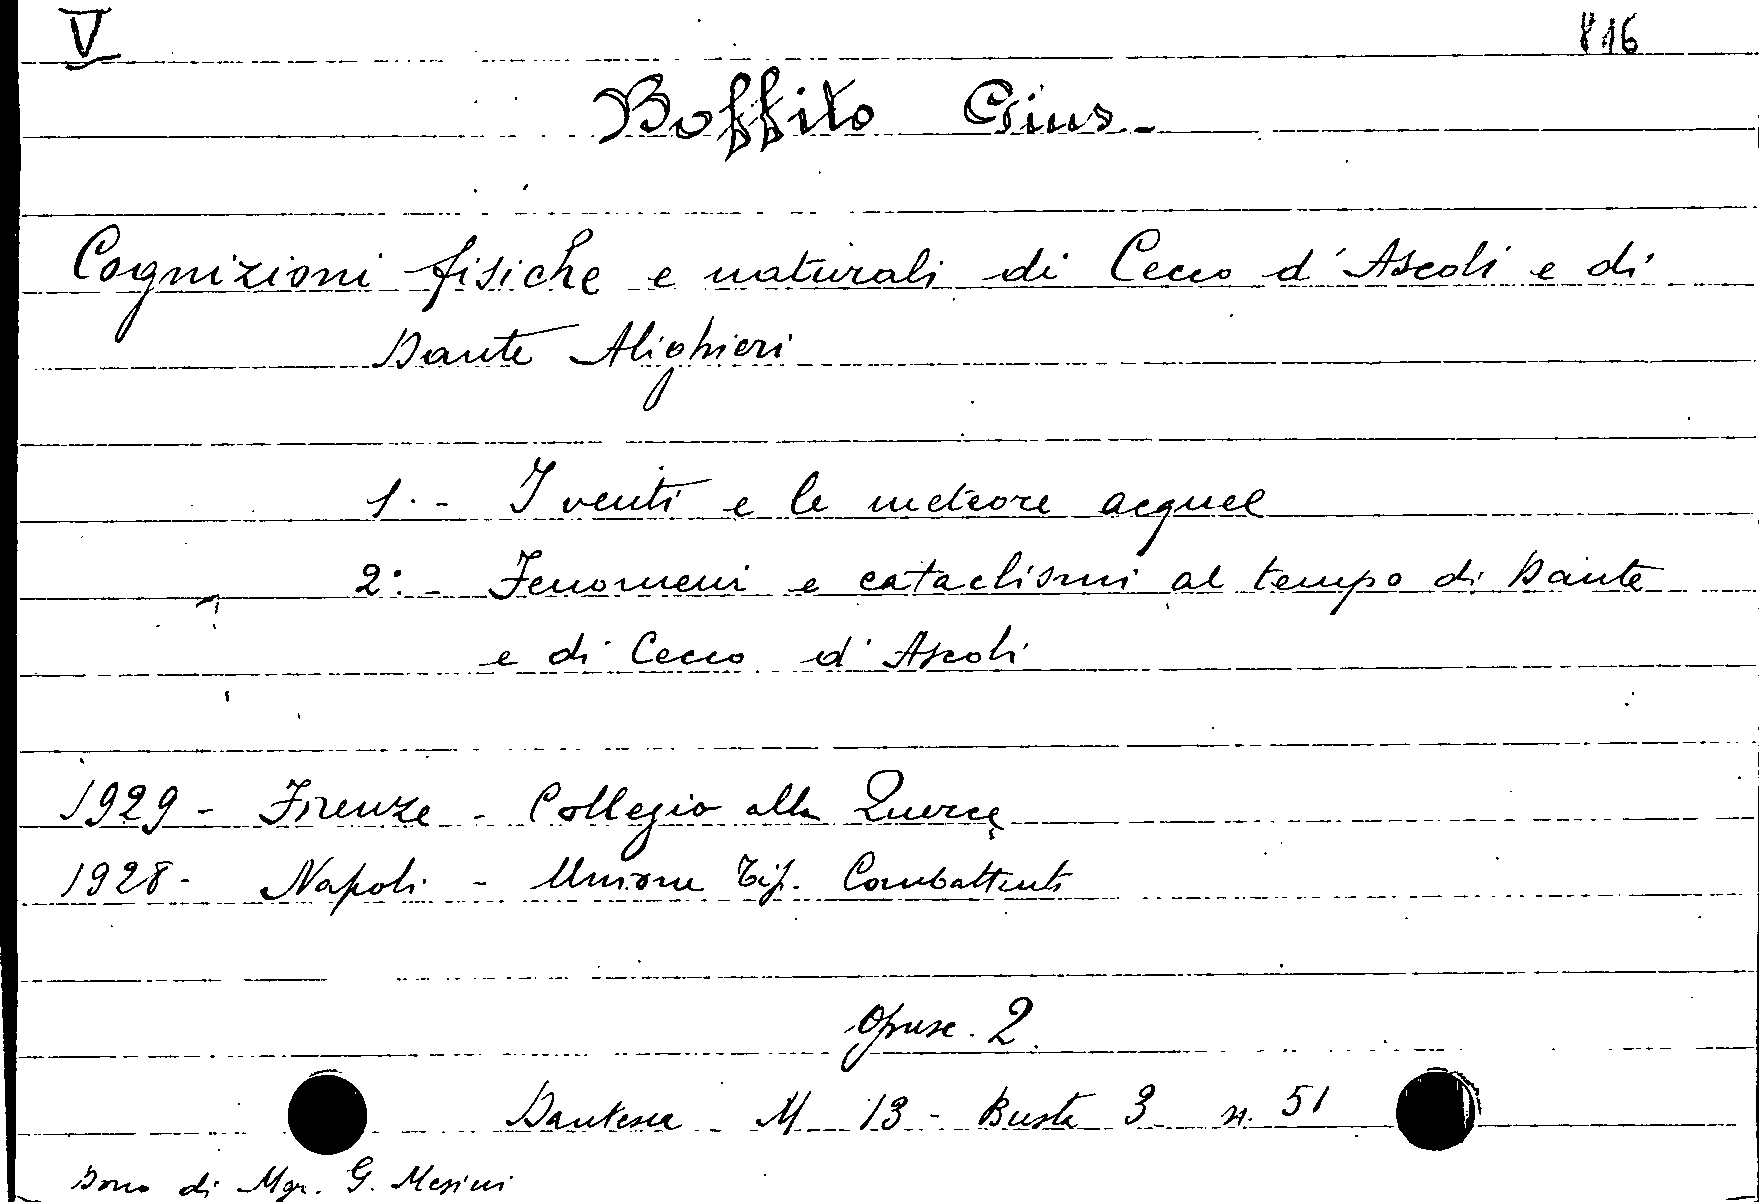 V 816
Boffito Gius.
Cognizioni fisiche e naturali di Cecco d'Ascoli e di
Dante Alighieri
1. - I venti e le meteore acquee
2: - Fenomeni e cataclismi al tempo di Dante
e di Cecco d'Ascoli
1929 - Firenze - Collegio alla Querce
1928 - Napoli - Unione Tip. Combattenti
Opusc. 2
Dantesca M 13 - Busta 3 n. 51
Dono di Mgr. G. Mesini